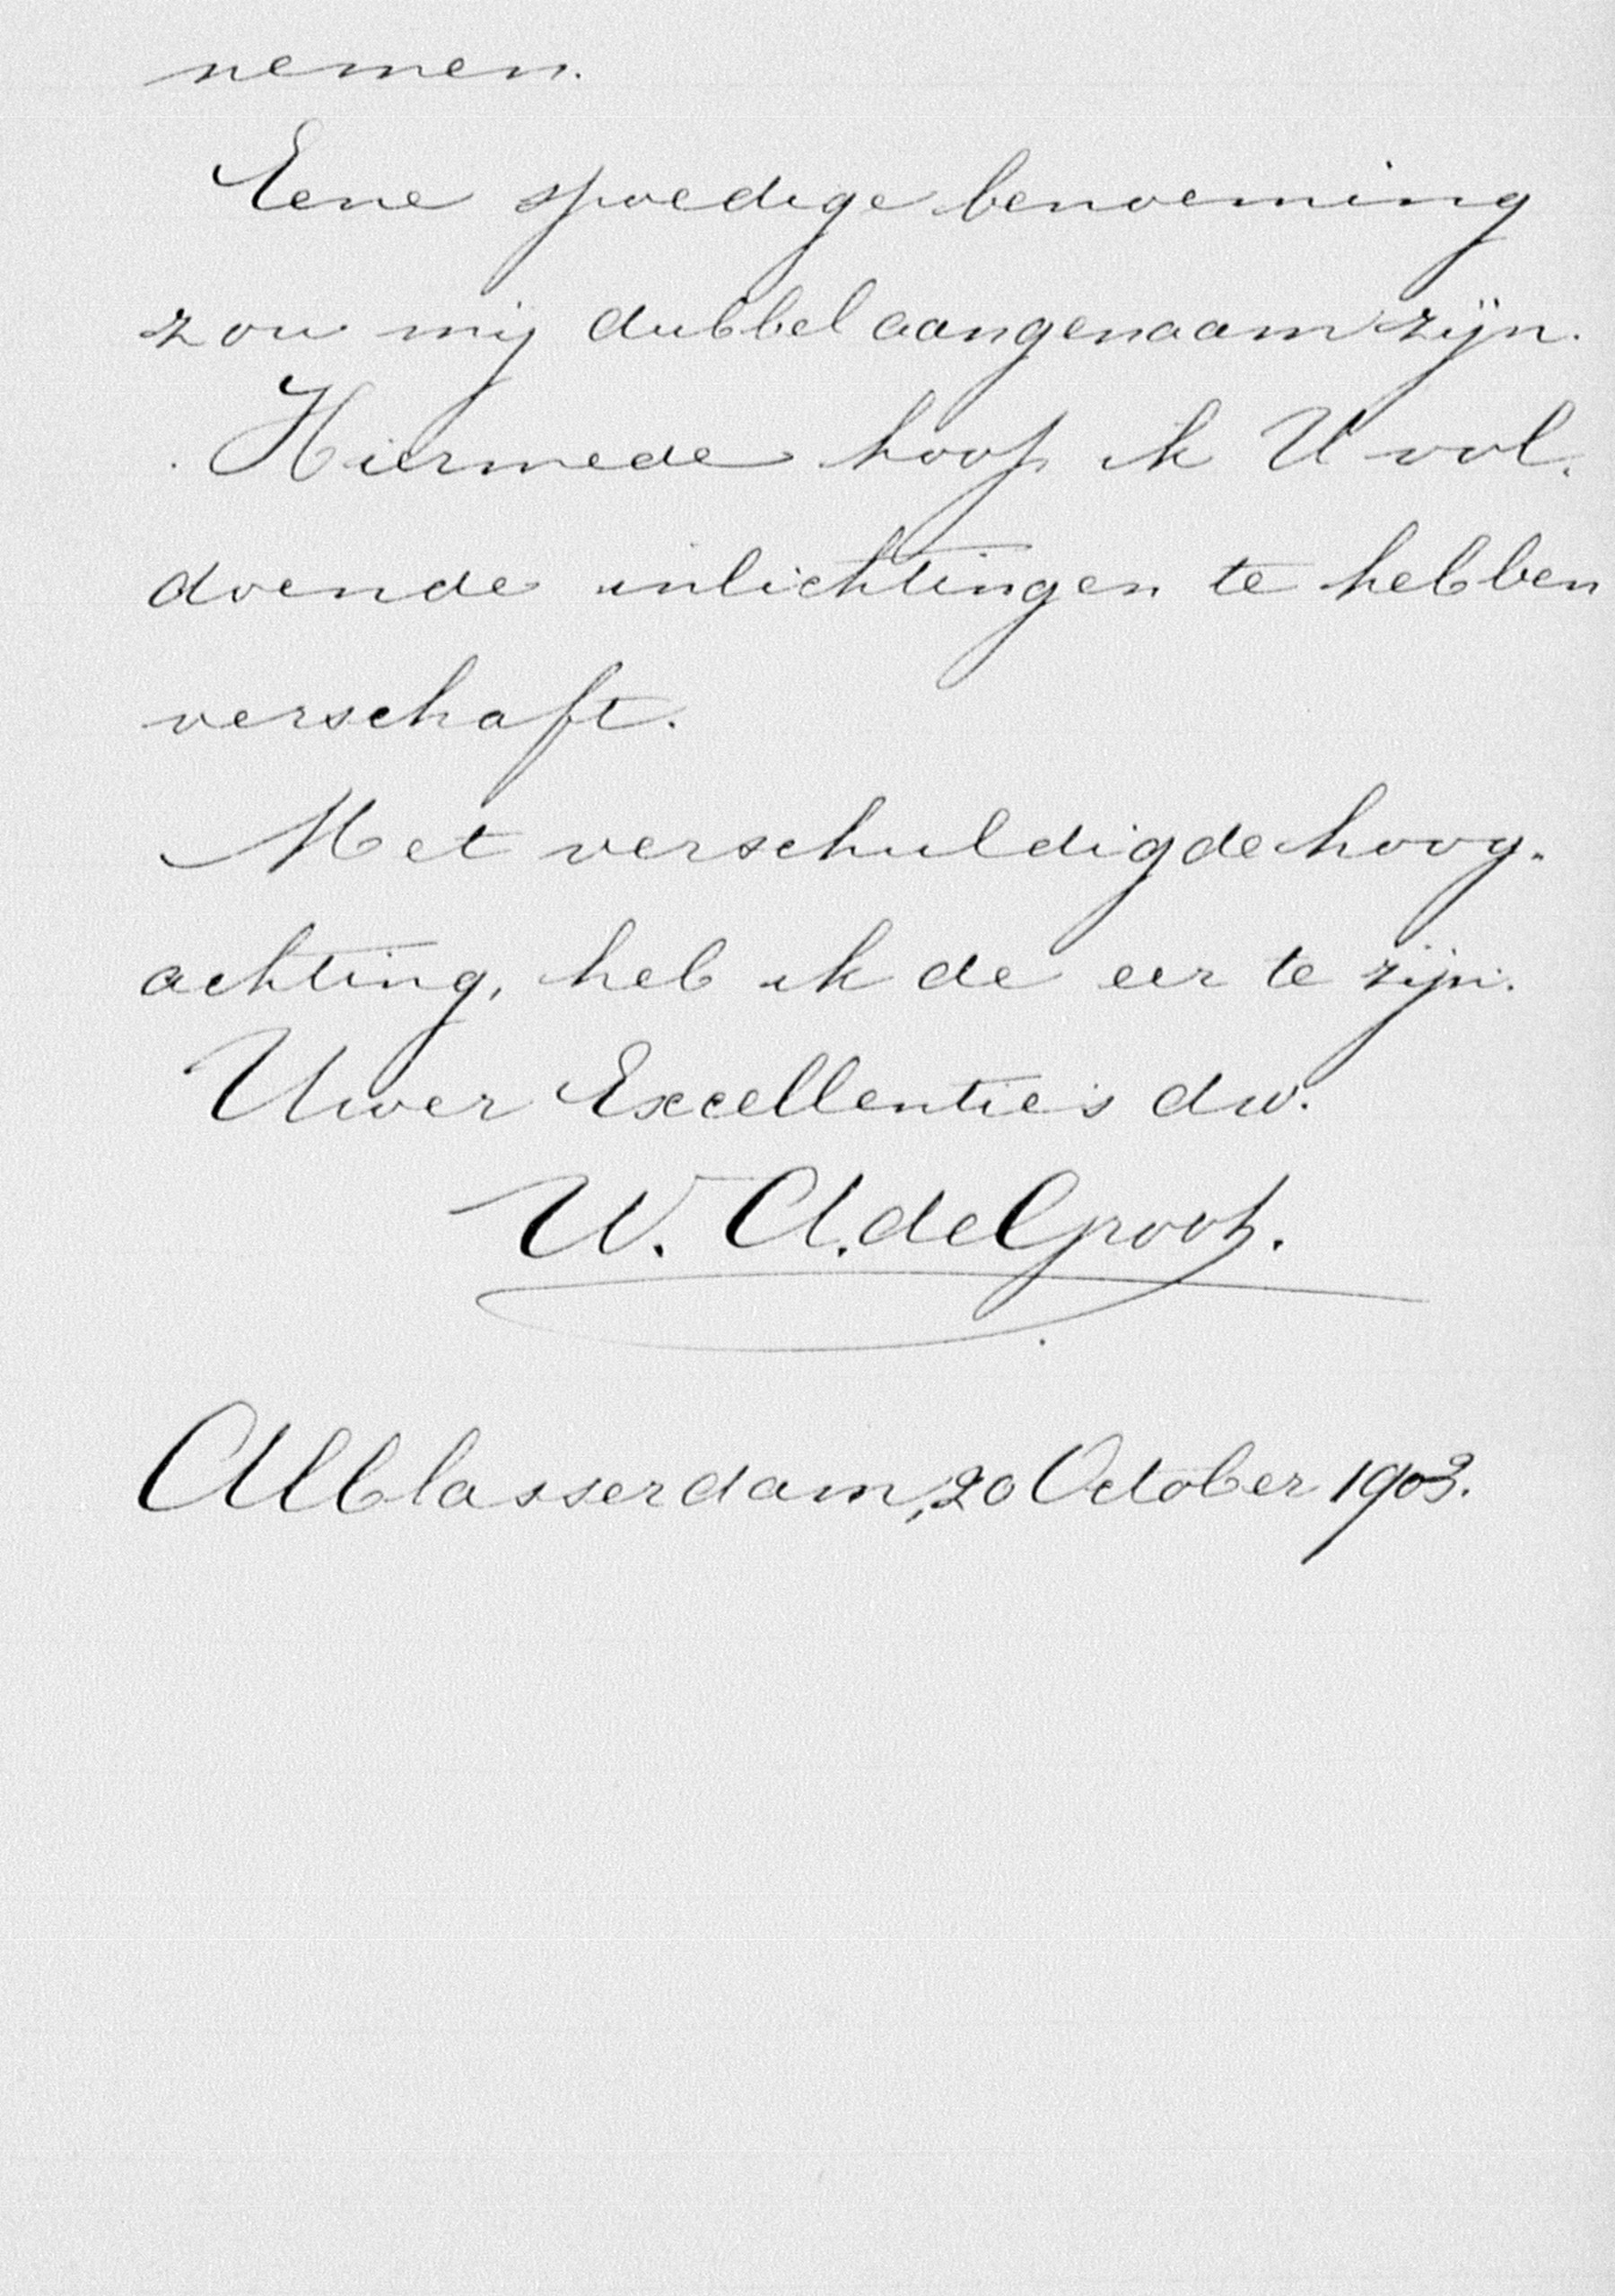 nemen.
Eene spoedige benoeming
zou mij dubbel aangenaam zijn.
Hiermede hoop ik U vol-
doende inlichtingen te hebben
verschaft.
Met verschuldigde hoog-
achting, heb ik de eer te zijn.
Uwer Excellentie's dw.
W. A. de Groot.
Alblasserdam, 20 October 1903.